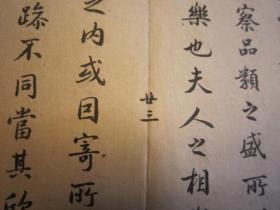 察品類之盛所
樂也夫人之相
廿三
之内或因寄所
躁不同當其欣